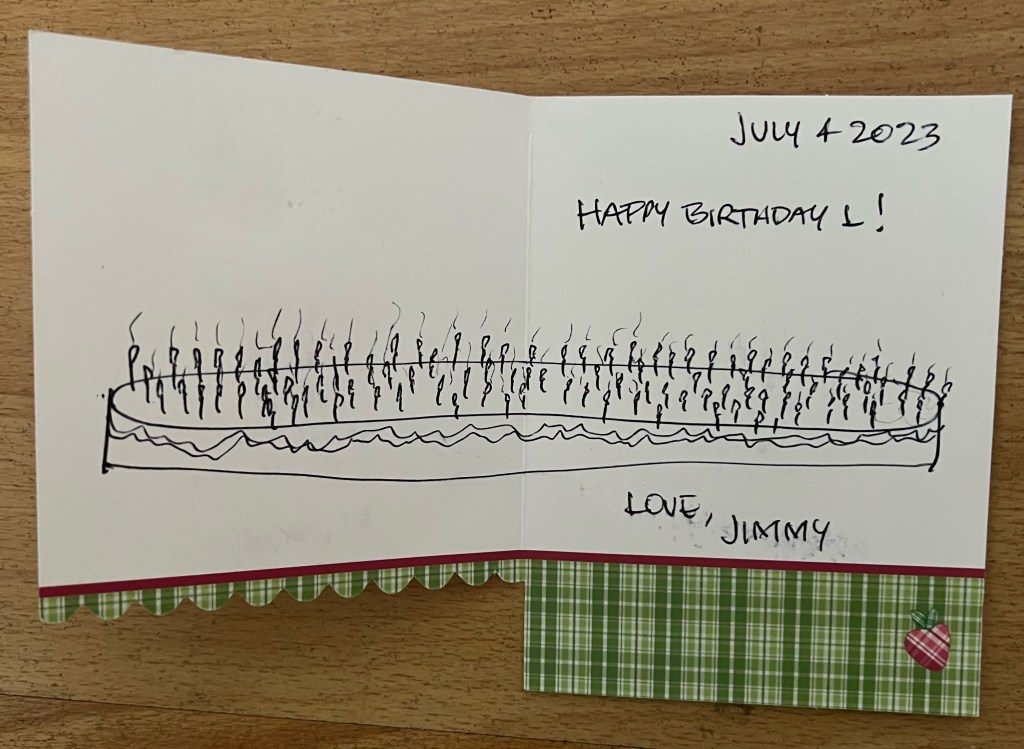 JULY 4 2023
HAPPY BIRTHDAY L!
LOVE,
JIMMY